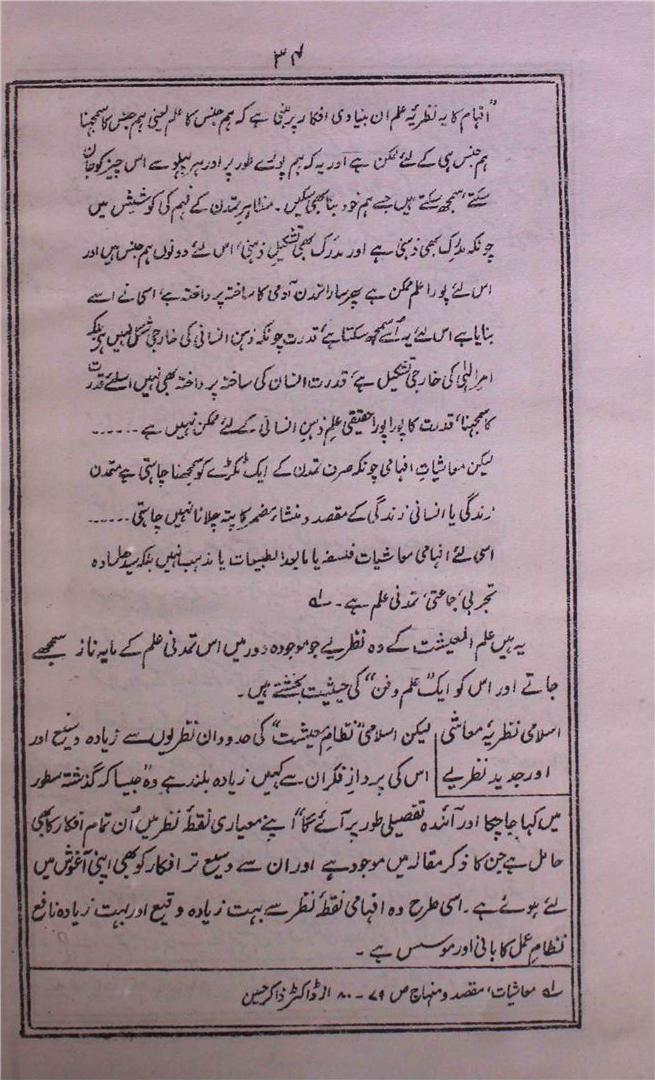 ۳۴
"افہام کا یہ نظریۂ علم ان بنیادی افکار پر مبنی ہے کہ ہم جنس کا علم یعنی ہم جنس کا سمجھنا
ہم جنس ہی کے لئے ممکن ہے اور یہ کہ ہم پورے طور پر اور ہر پہلو سے اس چیز کو جان
سکتے، سمجھ سکتے ہیں جسے ہم خود بنا بھی سکیں۔ مظاہر تمدن کے فہم کی کوشش میں
چونکہ مُدرِک بھی ذہنی ہے اور مدرَک بھی تشکیل ذہنی، اس لئے دونوں ہم جنس ہیں اور
اس لئے پورا علم ممکن ہے پھر سارا تمدن آدمی کا ساختہ پرداختہ ہے، اسی نے اسے
بنایا ہے اس لئے یہ اُسے سمجھ سکتا ہے، قدرت چونکہ ذہن انسانی کی خارجی شکل نہیں ہر بلکہ
امر الہٰی کی خارجی تشکیل ہے، قدرت انسان کی ساختہ پرداختہ بھی نہیں اسلئے قدرت
کا سمجھنا، قدرت کا پورا پورا حقیقی علم ذہن انسانی کے لئے ممکن نہیں ہے ۔۔۔۔۔۔
لیکن معاشیات افہامی چونکہ صرف تمدن کے ایک ٹکڑے کو سمجھنا چاہتی ہے متمدن
زندگی یا انسانی زندگی کے مقصد و منشاء مضمر کا پتہ چلانا نہیں چاہتی ۔۔۔۔۔۔
اسی لئے افہامی معاشیات فلسفہ یا مابعد الطبیعات یا مذہب نہیں بلکہ سیدھا سادہ
تجربی، جماعتی، تمدنی علم ہے۔ لہ
یہ ہیں علم المعیشت کے وہ نظریے جو موجودہ دور میں اس تمدنی علم کے مایہ ناز سمجھے
جاتے اور اس کو ایک "علم و فن" کی حیثیت بخشتے ہیں۔
اسلامی نظریۂ معاشی لیکن اسلامی "نظام معیشت" کی حدود ان نظریوں سے زیادہ وسیع اور
اور جدید نظریے اس کی پرواز فکر ان سے کہیں زیادہ بلند ہے وہ "جیسا کہ گذشتہ سطور
میں کہا جا چکا اور آئندہ تفصیلی طور پر آئے گا" اپنے معیاری نقطۂ نظر میں اُن تمام افکار کا بھی
حامل ہے جن کا ذکر مقالہ میں موجود ہے اور ان سے وسیع تر افکار کو بھی اپنی آغوش میں
لئے ہوئے ہے۔ اسی طرح وہ افہامی نقطۂ نظر سے بہت زیادہ وقیع اور بہت زیادہ نافع
نظام عمل کا بانی اور موسس ہے۔
لہ معاشیات، مقصد و منہاج ص ۷۹-۸۰ از ڈاکٹر ذاکر حسین